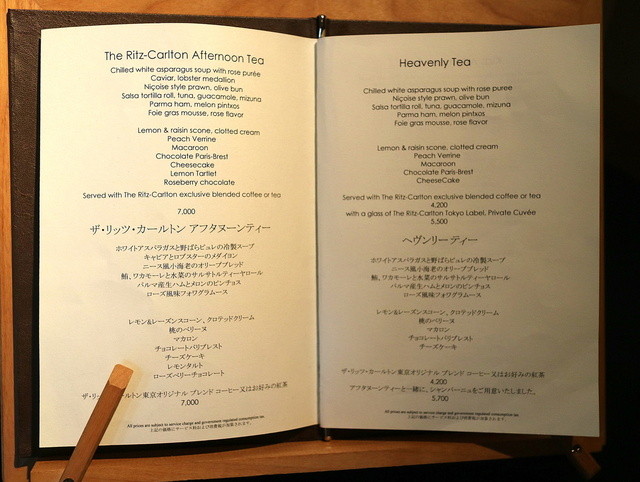 The Ritz-Carlton Afternoon Tea
Chilled white asparagus soup with rose purée
Caviar, lobster medallion
Niçoise style prawn, olive bun
Salsa tortilla roll, tuna, guacamole, mizuna
Parma ham, melon pintxos
Foie gras mousse, rose flavor
Lemon & raisin scone, clotted cream
Peach Verrine
Macaroon
Chocolate Paris-Brest
Cheesecake
Lemon Tartlet
Roseberry chocolate
Served with The Ritz-Carlton exclusive blended coffee or tea
7,000
ザ・リッツ・カールトン アフタヌーンティー
ホワイトアスパラガスと野ばらピュレの冷製スープ
キャビアとロブスターのメダイヨン
ニース風小海老のオリーブブレッド
鮪、ワカモーレと水菜のサルサトルティーヤロール
パルマ産生ハムとメロンのピンチョス
ローズ風味フォワグラムース
レモン&レーズンスコーン、クロテッドクリーム
桃のベリーヌ
マカロン
チョコレートパリブレスト
チーズケーキ
レモンタルト
ローズベリーチョコレート
ザ・リッツ・カールトン東京オリジナル ブレンド コーヒー又はお好みの紅茶
7,000
All prices are subject to service charge and government regulated consumption tax.
上記の価格にサービス料および消費税が加算されます。
Heavenly Tea
Chilled white asparagus soup with rose puree
Niçoise style prawn, olive bun
Salsa tortilla roll, tuna, guacamole, mizuna
Parma ham, melon pintxos
Foie gras mousse, rose flavor
Lemon & raisin scone, clotted cream
Peach Verrine
Macaroon
Chocolate Paris-Brest
CheeseCake
Served with The Ritz-Carlton exclusive blended coffee or tea
4,200
with a glass of The Ritz-Carlton Tokyo Label, Private Cuvée
5,500
ヘヴンリーティー
ホワイトアスパラガスと野ばらピュレの冷製スープ
ニース風小海老のオリーブブレッド
鮪、ワカモーレと水菜のサルサトルティーヤロール
パルマ産生ハムとメロンのピンチョス
ローズ風味フォワグラムース
レモン&レーズンスコーン、クロテッドクリーム
桃のベリーヌ
マカロン
チョコレートパリブレスト
チーズケーキ
ザ・リッツ・カールトン東京オリジナル ブレンド コーヒー又はお好みの紅茶
4,200
アフタヌーンティーと一緒に、シャンパーニュをご用意いたしました。
5,700
All prices are subject to service charge and government regulated consumption tax.
上記の価格にサービス料および消費税が加算されます。